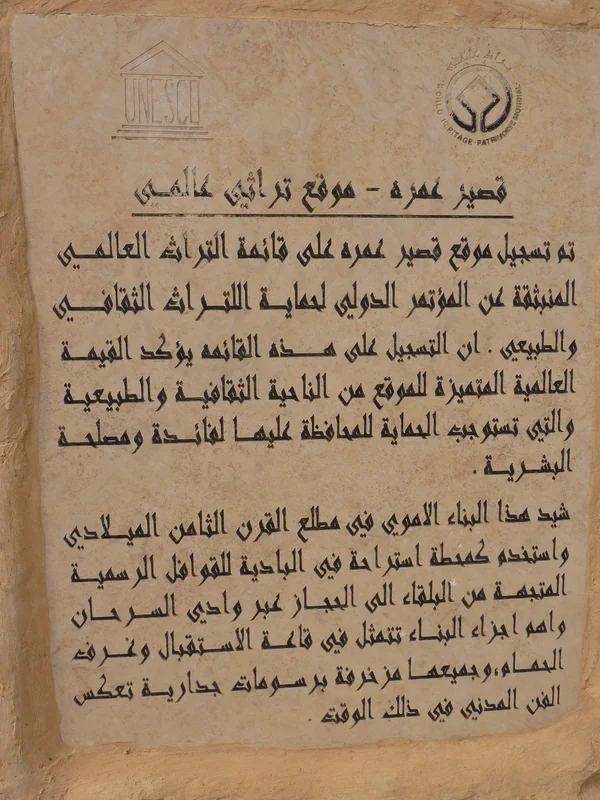 UNESCO
WORLD HERITAGE · PATRIMOINE MONDIAL
قصير عمره - موقع تراثي عالمي
تم تسجيل موقع قصير عمره على قائمة التراث العالمي
المنبثقة عن المؤتمر الدولي لحماية اللتراث الثقافي
والطبيعي . ان التسجيل على هذه القائمه يؤكد القيمة
العالمية المتميزة للموقع من الناحية الثقافية والطبيعية
والتي تستوجب الحماية للمحافظة عليها لفائدة ومصلحة
البشرية .
شيد هذا البناء الاموي في مطلع القرن الثامن الميلادي
واستخدم كمحطة استراحة في البادية للقوافل الرسمية
المتجهة من البلقاء الى الحجاز عبر وادي السرحان
واهم اجزاء البناء تتمثل في قاعة الاستقبال وغرف
الحمام،وجميعها مزخرفة برسومات جدارية تعكس
الفن المدني في ذلك الوقت .